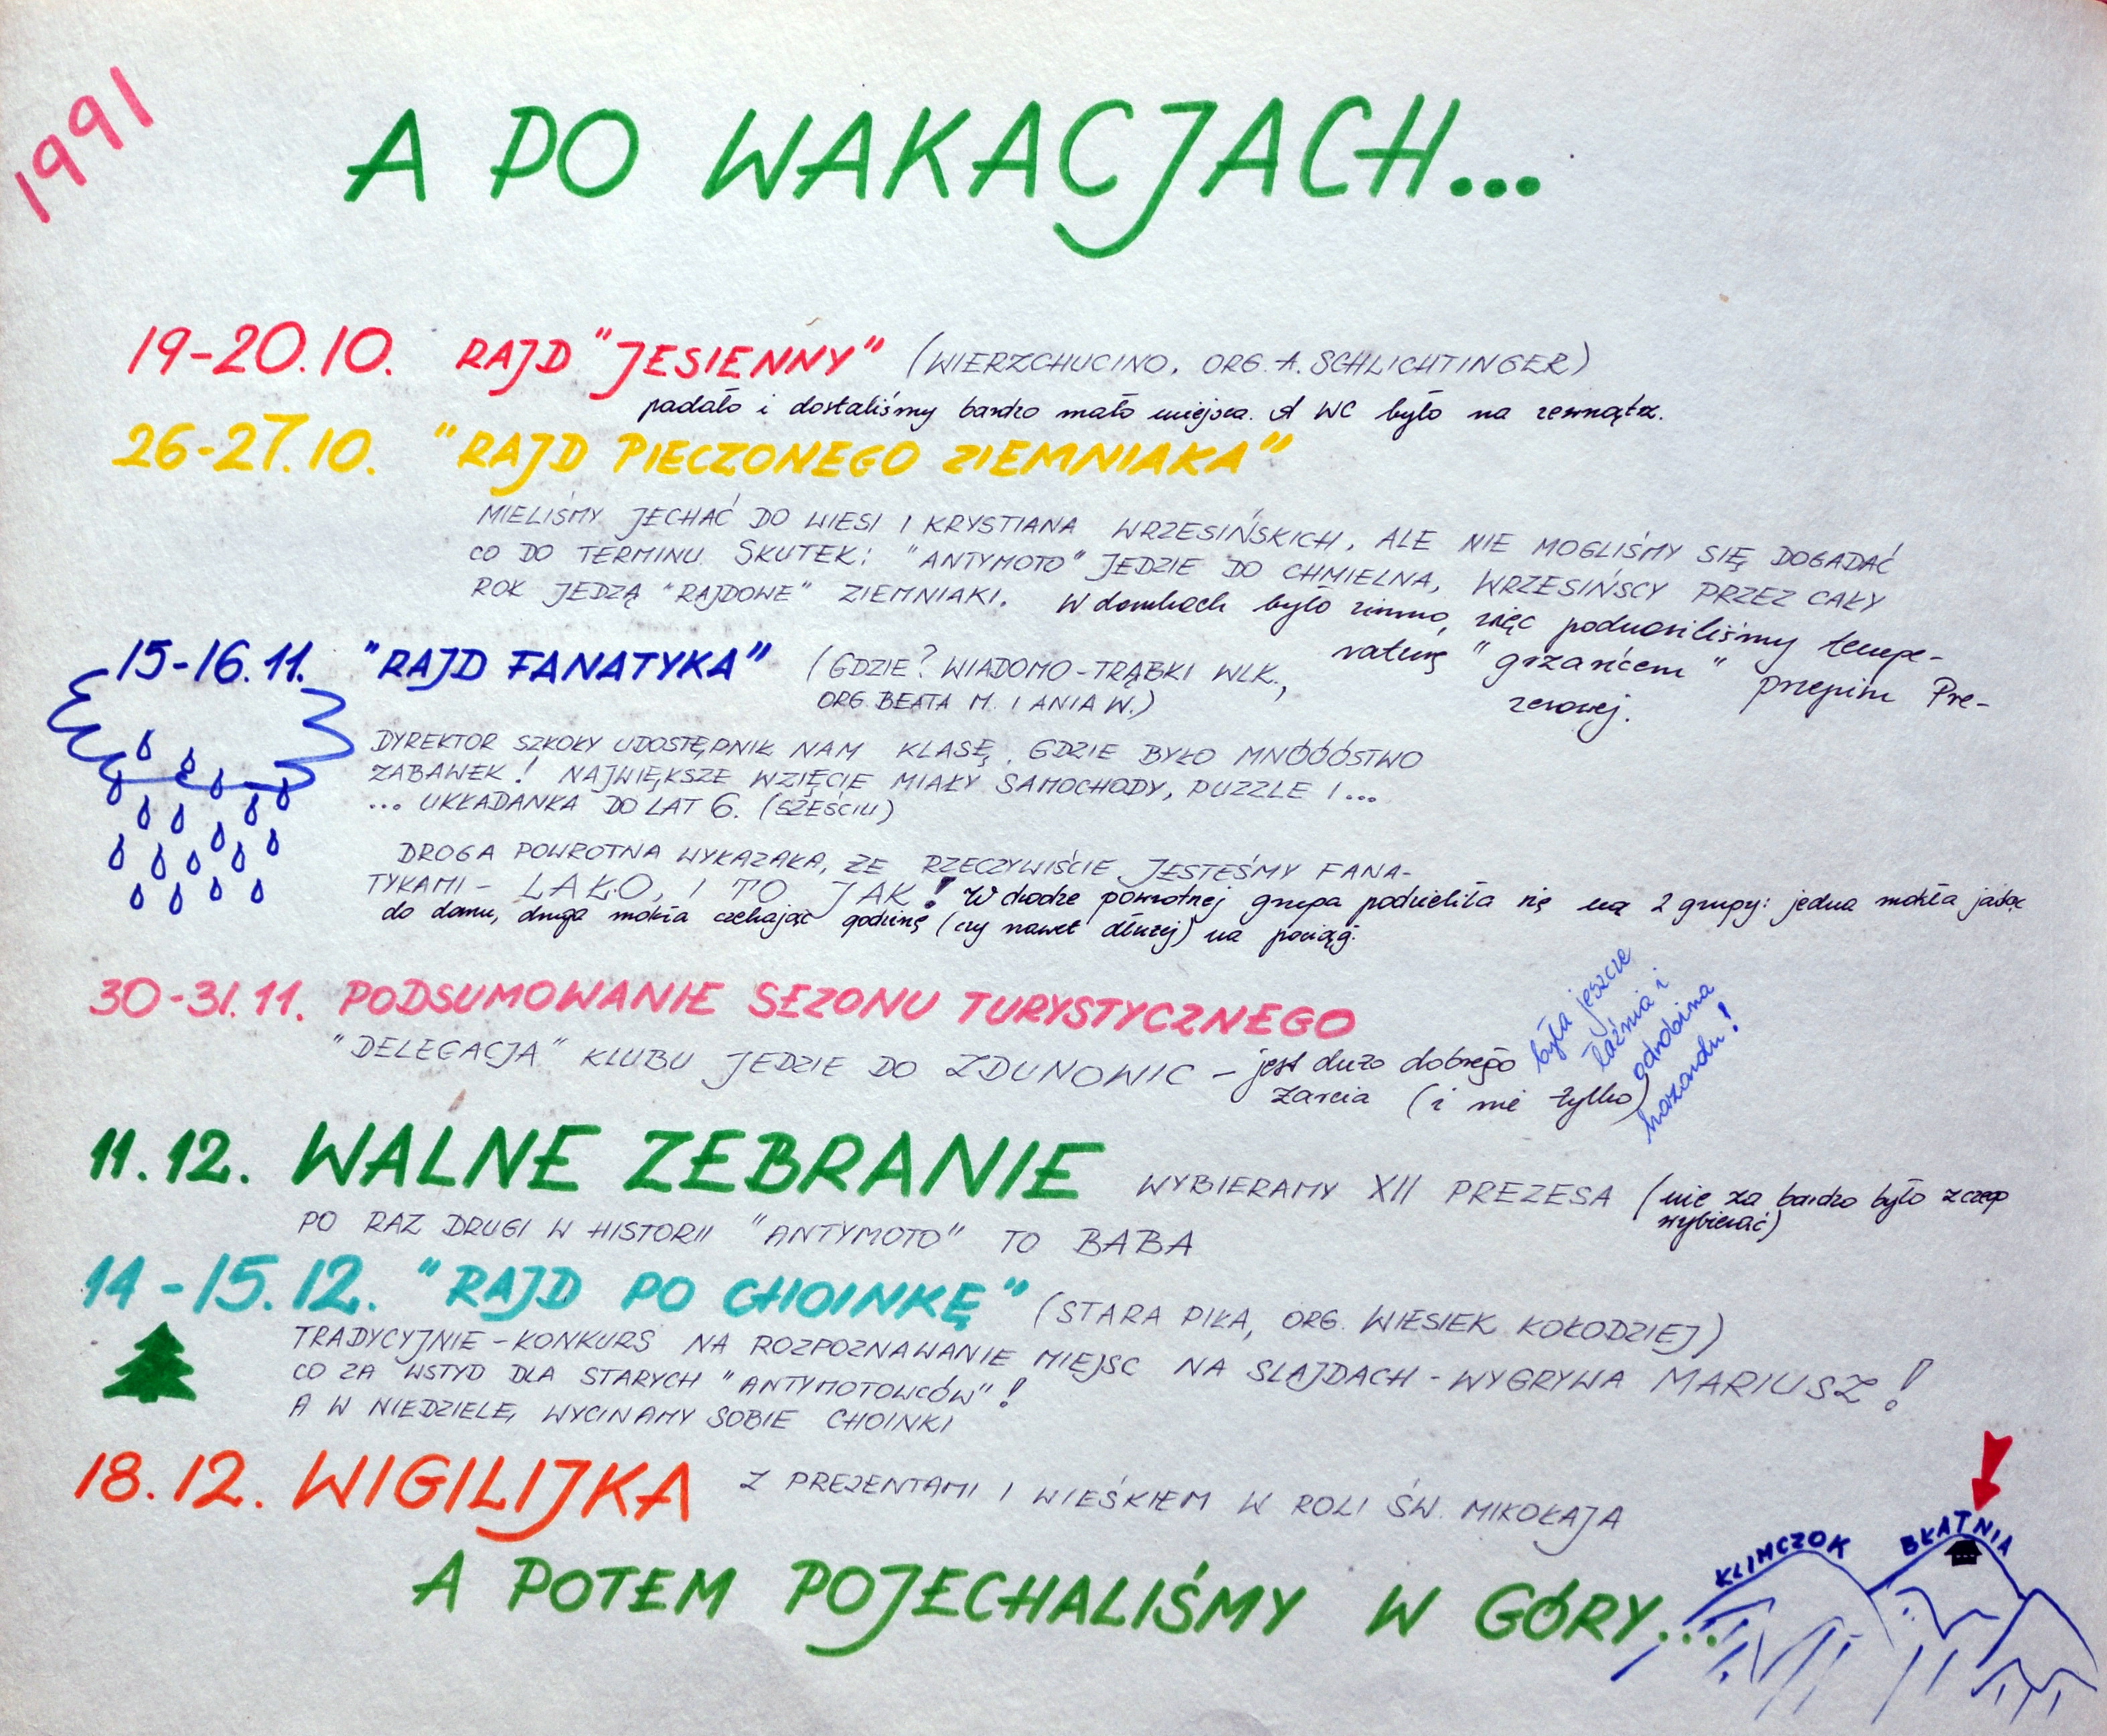 1991
A PO WAKACJACH...
19-20.10. RAJD "JESIENNY" (WIERZCHUCINO, ORG. A. SCHLICHTINGER)
padało i dostaliśmy bardzo mało miejsca. A WC było na zewnątrz.
26-27.10. "RAJD PIECZONEGO ZIEMNIAKA"
MIELIŚMY JECHAĆ DO WIESI I KRYSTIANA WRZESIŃSKICH, ALE NIE MOGLIŚMY SIĘ DOGADAĆ
CO DO TERMINU. SKUTEK: "ANTYMOTO" JEDZIE DO CHMIELNA, WRZESIŃSCY PRZEZ CAŁY
ROK JEDZĄ "RAJDOWE" ZIEMNIAKI. W domkach było zimno, więc podnosiliśmy tempe-
raturę "grzańcem" przepisu Pre-
zesowej.
15-16.11. "RAJD FANATYKA" (GDZIE? WIADOMO-TRĄBKI WLK.,
ORG. BEATA M. I ANIA W.)
DYREKTOR SZKOŁY UDOSTĘPNIŁ NAM KLASĘ, GDZIE BYŁO MNÓÓÓSTWO
ZABAWEK! NAJWIĘKSZE WZIĘCIE MIAŁY SAMOCHODY, PUZZLE I...
... UKŁADANKA DO LAT 6. (SZEŚCIU)
DROGA POWROTNA WYKAZAŁA, ŻE RZECZYWIŚCIE JESTEŚMY FANA-
TYKAMI - LAŁO, I TO JAK! W drodze powrotnej grupa podzieliła się na 2 grupy: jedna mokła jadąc
do domu, druga mokła czekając godzinę (czy nawet dłużej) na pociąg.
30-31.11. PODSUMOWANIE SEZONU TURYSTYCZNEGO
"DELEGACJA" KLUBU JEDZIE DO ZDUNOWIC - jest dużo dobrego
żarcia (i nie tylko)
była jeszcze
łaźnia i
odrobina
hazardu!
11.12. WALNE ZEBRANIE WYBIERAMY XII PREZESA (nie za bardzo było z czego
wybierać)
PO RAZ DRUGI W HISTORII "ANTYMOTO" TO BABA
14-15.12. "RAJD PO CHOINKĘ" (STARA PIŁA, ORG. WIESIEK KOŁODZIEJ)
TRADYCYJNIE - KONKURS NA ROZPOZNAWANIE MIEJSC NA SLAJDACH - WYGRYWA MARIUSZ!
CO ZA WSTYD DLA STARYCH "ANTYMOTOWCÓW"!
A W NIEDZIELĘ, WYCINAMY SOBIE CHOINKI
18.12. WIGILIJKA Z PREZENTAMI I WIEŚKIEM W ROLI ŚW. MIKOŁAJA
A POTEM POJECHALIŚMY W GÓRY...
KLIMCZOK
BŁATNIA